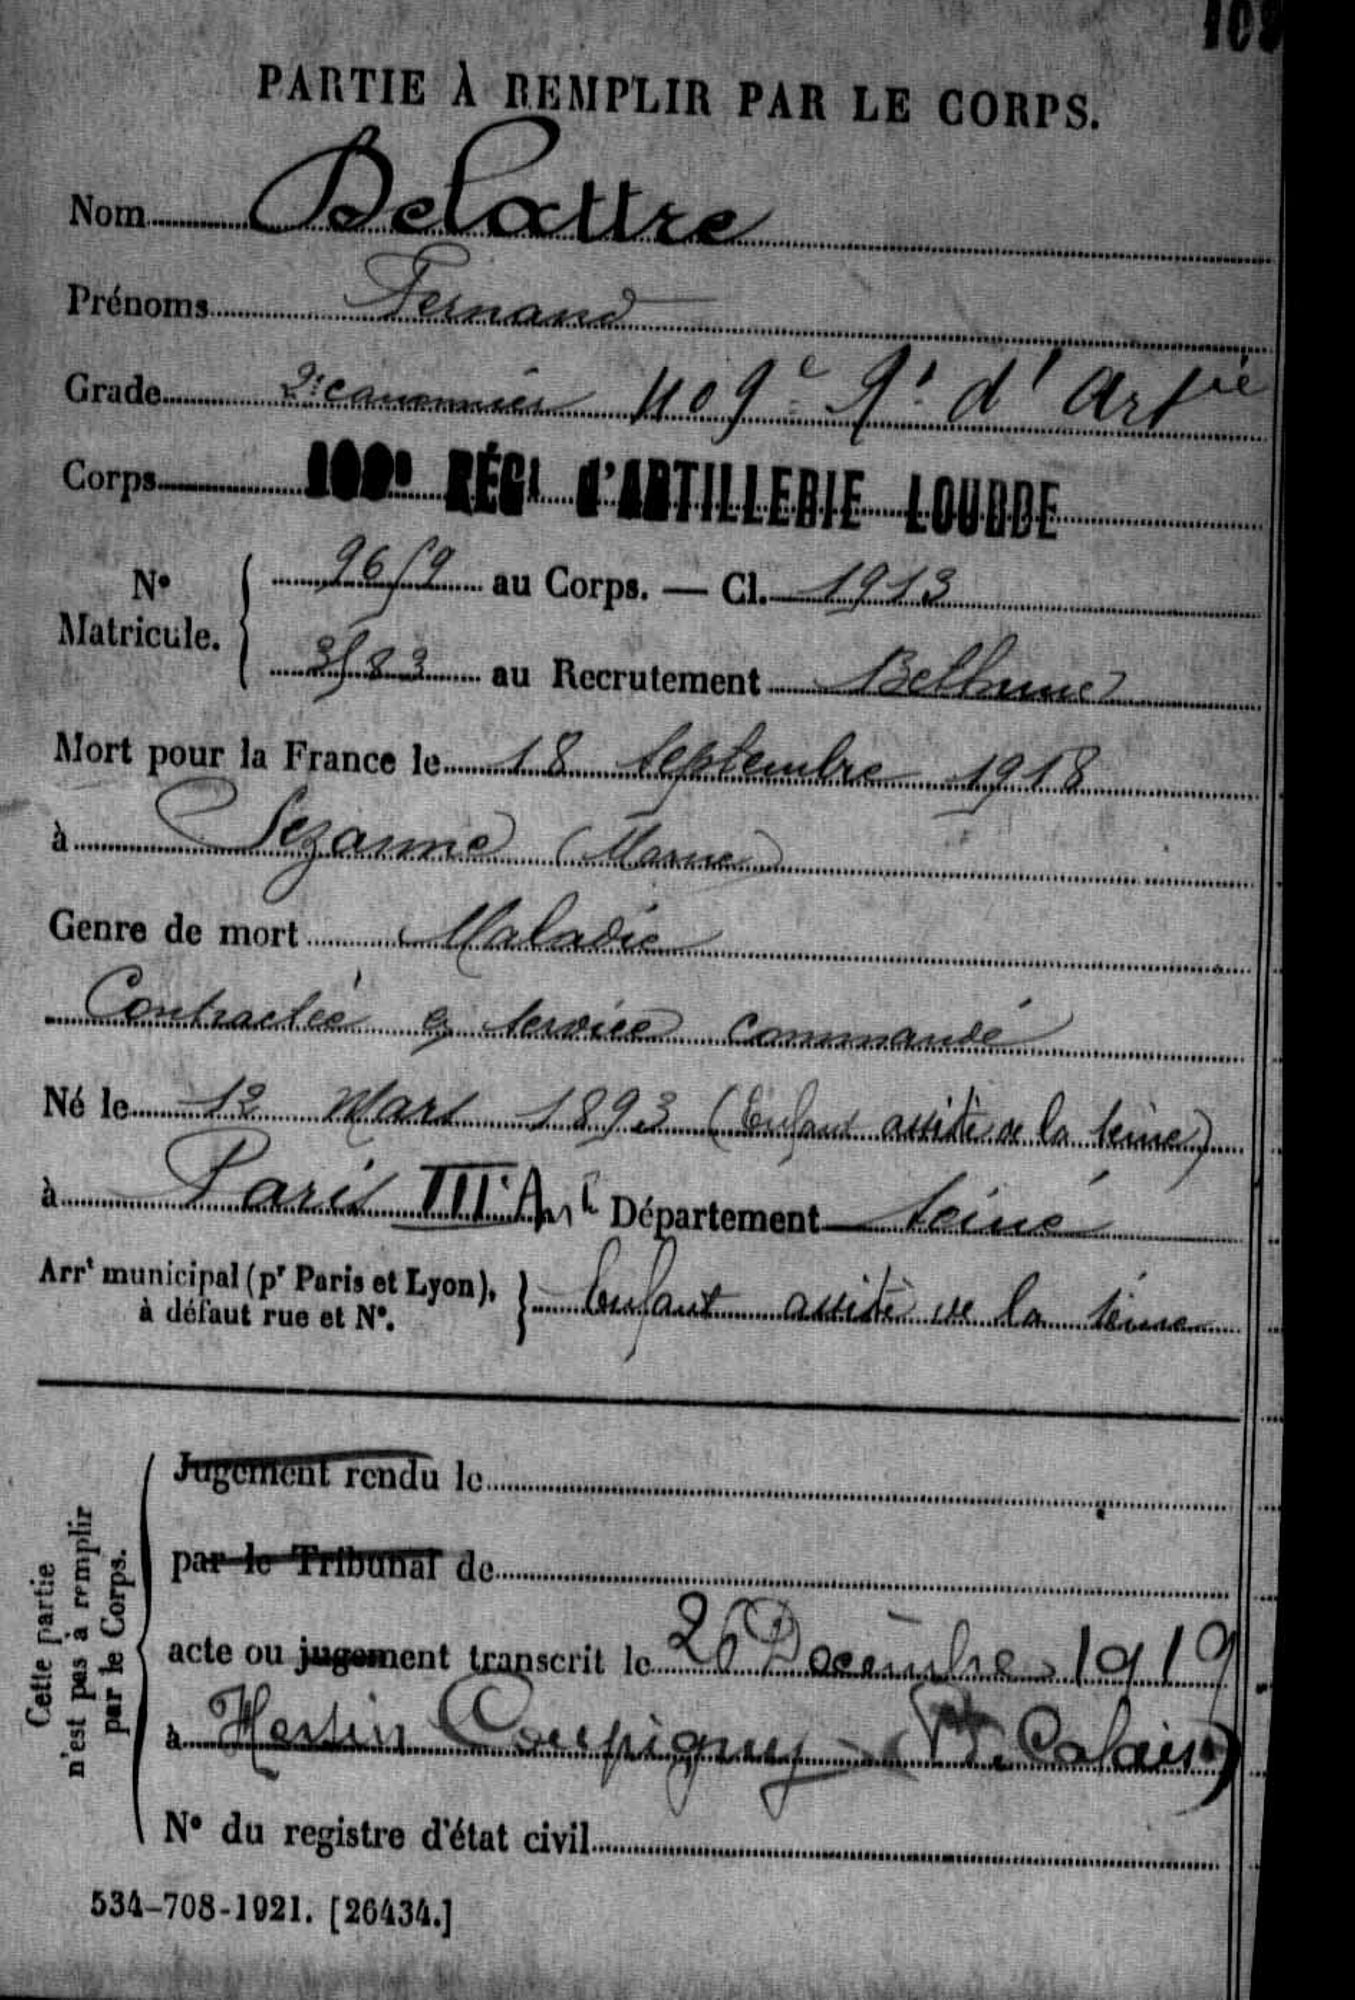 PARTIE À REMPLIR PAR LE CORPS.
Nom Delattre
Prénoms Fernand
Grade 2e canonnier 409e Rt d'Artie
Corps RÉGt D'ARTILLERIE LOURDE
No Matricule. 9659 au Corps. — Cl. 1913
3583 au Recrutement Béthune
Mort pour la France le 18 Septembre 1918
à Sézanne (Marne)
Genre de mort Maladie
Contractée en service commandé
Né le 12 Mars 1893 (Enfant assisté de la Seine)
à Paris III Art Département Seine
Arrt municipal (pr Paris et Lyon), à défaut rue et No. } Enfant assisté de la Seine
Cette partie n'est pas à remplir par le Corps.
Jugement rendu le
par le Tribunal de
acte ou jugement transcrit le 26 Décembre 1919
à Hersin Coupigny (P. Calais)
No du registre d'état civil
534-708-1921. [26434.]